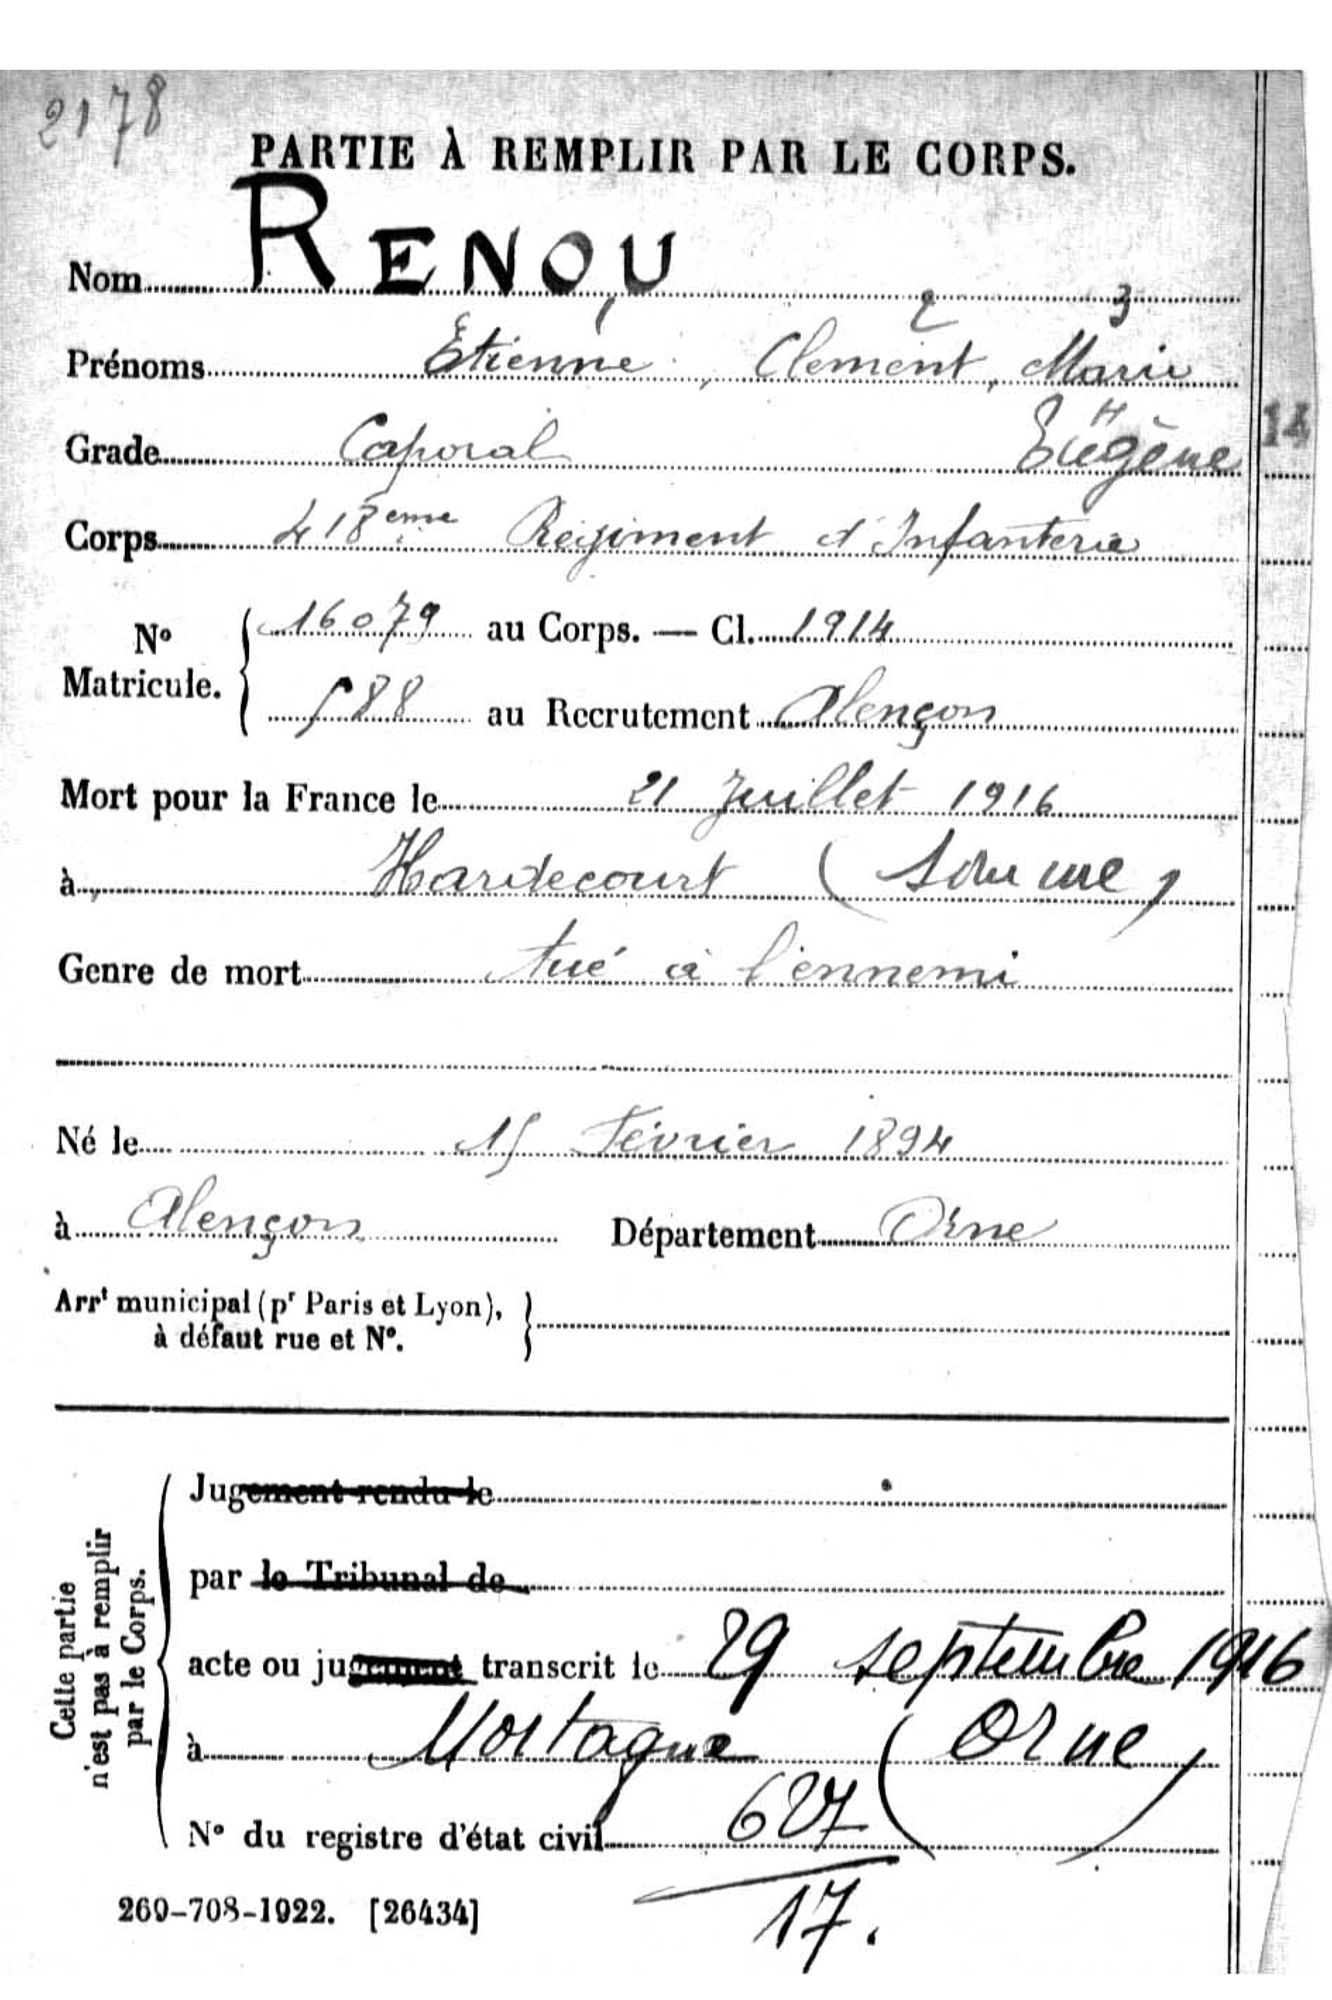 2178
PARTIE À REMPLIR PAR LE CORPS.
Nom RENOU
1 2 3
Prénoms Etienne, Clement, Marie
Grade Caporal Eugène
4
14
Corps 418eme Regiment d'Infanterie
No Matricule. 16079 au Corps. — Cl. 1914
588 au Recrutement Alençon
Mort pour la France le 21 Juillet 1916
à Hardecourt (Somme)
Genre de mort tué à l'ennemi
Né le 15 Février 1894
à Alençon Département Orne
Arrt municipal (pr Paris et Lyon),
à défaut rue et No.
Cette partie
n'est pas à remplir
par le Corps.
Jugement rendu le
par le Tribunal de
acte ou jugement transcrit le 29 septembre 1916
à Mortagne (Orne)
No du registre d'état civil 627
17.
260-708-1922. [26434]